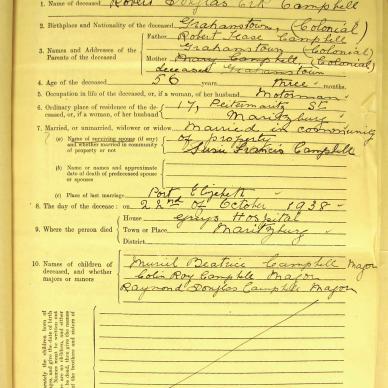 1. Name of deceased Robert Douglas Campbell
2. Birthplace and Nationality of the deceased Grahamstown, (Colonial)
Father Robert Campbell
3. Names and Addresses of the Parents of the deceased Grahamstown (Colonial)
Mother Mary Campbell (Colonial)
deceased Grahamstown
4. Age of the deceased 56 years three months
5. Occupation in life of the deceased, or, if a woman, of her husband Motorman
6. Ordinary place of residence of the deceased, or, if a woman, of her husband 17, Pietermaritz St.
Maritzburg
7. Married, or unmarried, widower or widow Married in community
(a) Name of surviving spouse (if any) and whether married in community of property or not of property
Susie Francis Campbell
(b) Name or names and approximate date of death of predeceased spouse or spouses
(c) Place of last marriage Port Elizabeth
8. The day of the decease: on 22nd of October 1938
House Greys Hospital
9. Where the person died Town or Place, Maritzburg
District
10. Names of children of deceased, and whether majors or minors
Muriel Beatrice Campbell Major
Colin Roy Campbell Major
Raymond Douglas Campbell Major